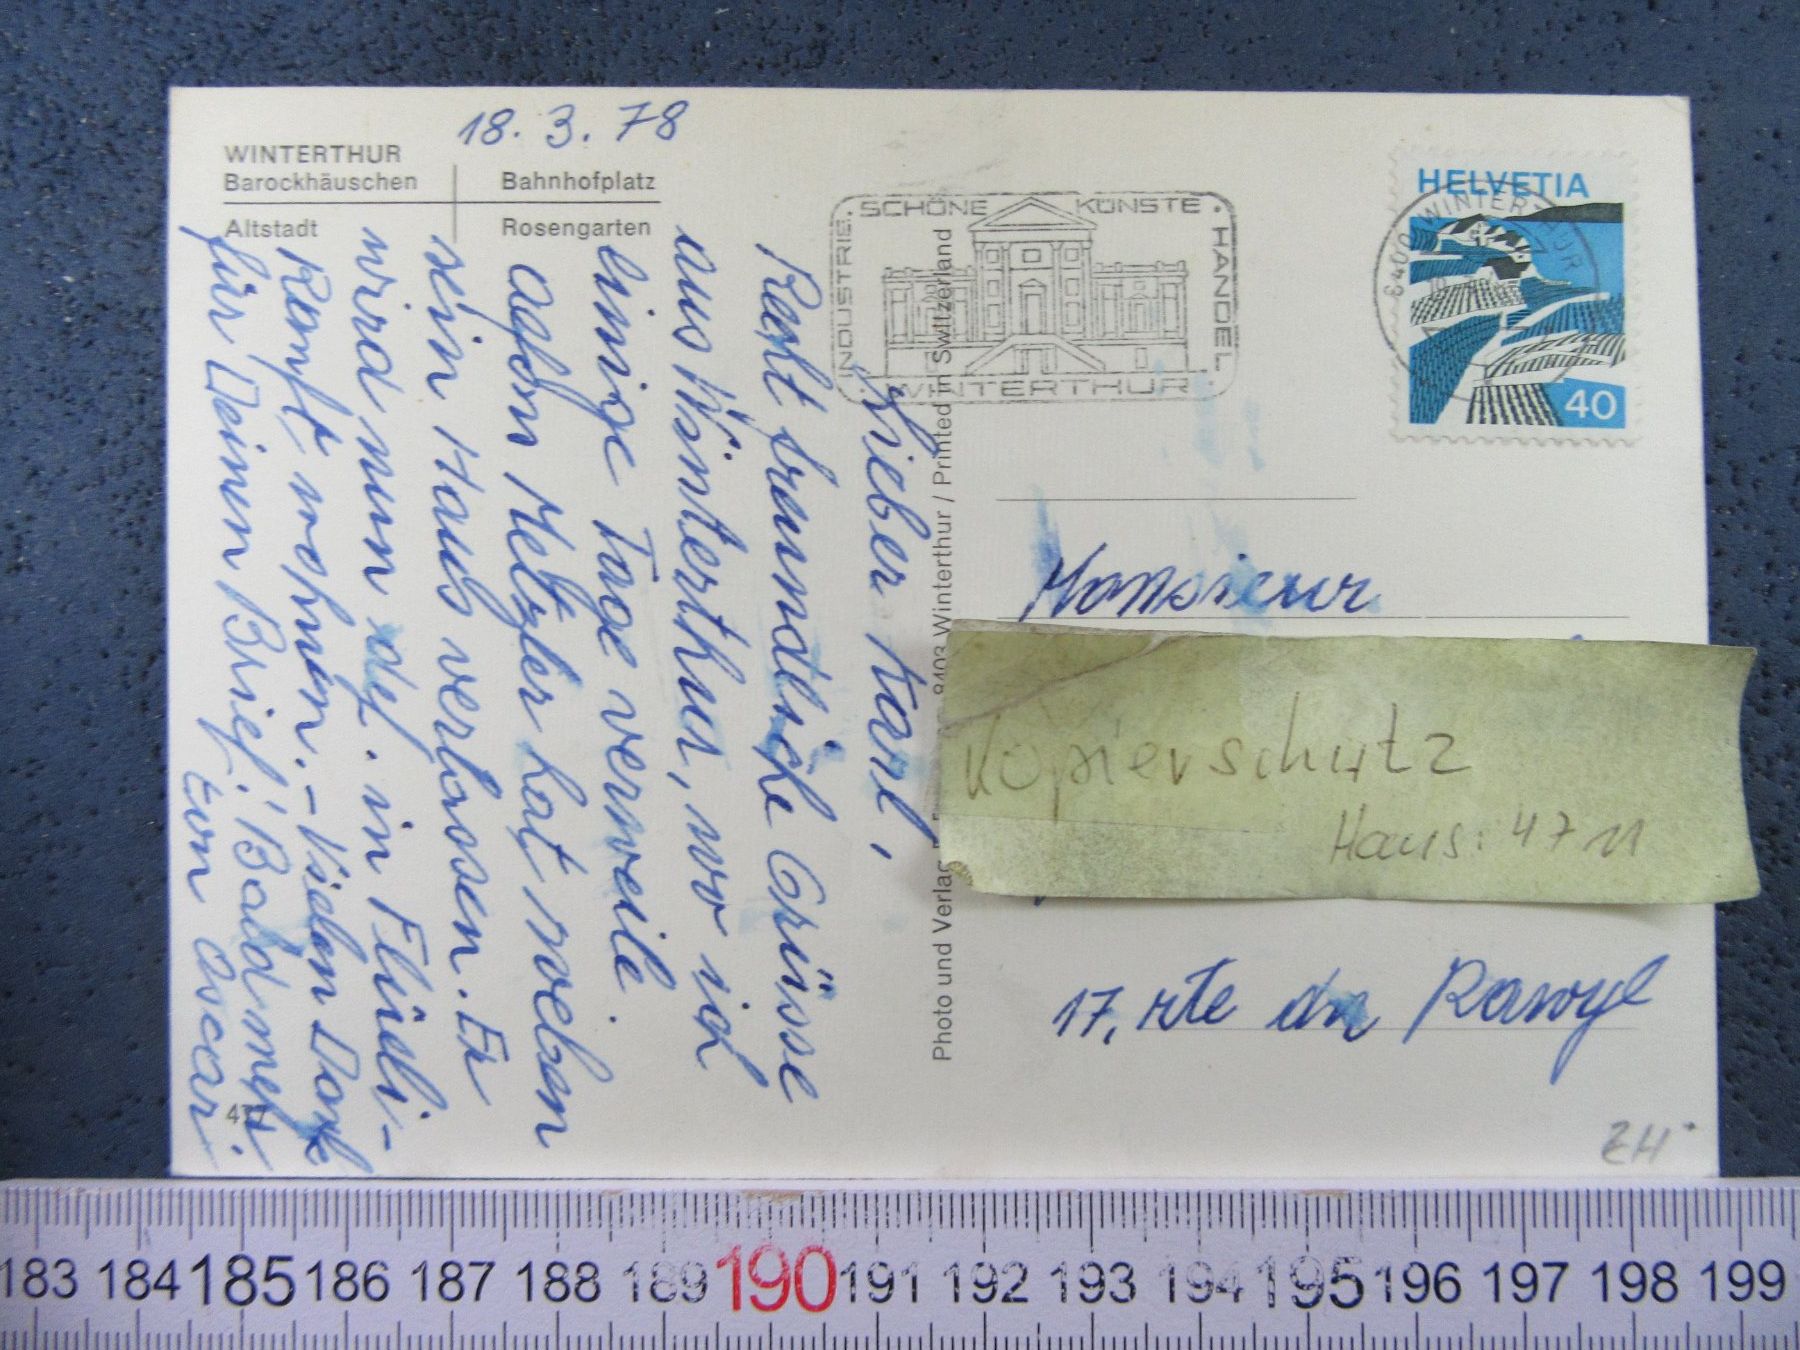 18. 3. 78
WINTERTHUR
Barockhäuschen Bahnhofplatz
Altstadt Rosengarten
SCHÖNE KÜNSTE
INDUSTRIE
HANDEL
WINTERTHUR
HELVETIA
8400 WINTERTHUR
40
Lieber Karl,
Recht freundliche Grüsse
aus Winterthur, wo ich
einige Tage verweile
Metzler hat soeben
sein Haus verlassen. Er
wird nun def. in Flüeli-
Ranft wohnen. – Vielen Dank
für Deinen Brief! Bald mehr
von Oscar.
Photo und Verlag
8403 Winterthur / Printed in Switzerland
Monsieur
Kopierschutz
Haus: 47 11
17, rte du Rawyl
ZH
183 184 185 186 187 188 189 190 191 192 193 194 195 196 197 198 199